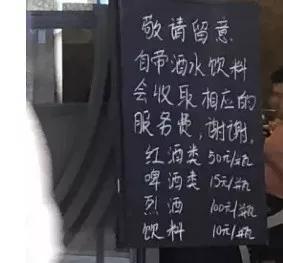 敬请留意
自带酒水饮料
会收取相应的
服务费,谢谢.
红酒类 50元/瓶
啤酒类 15元/瓶
烈酒 100元/瓶
饮料 10元/瓶